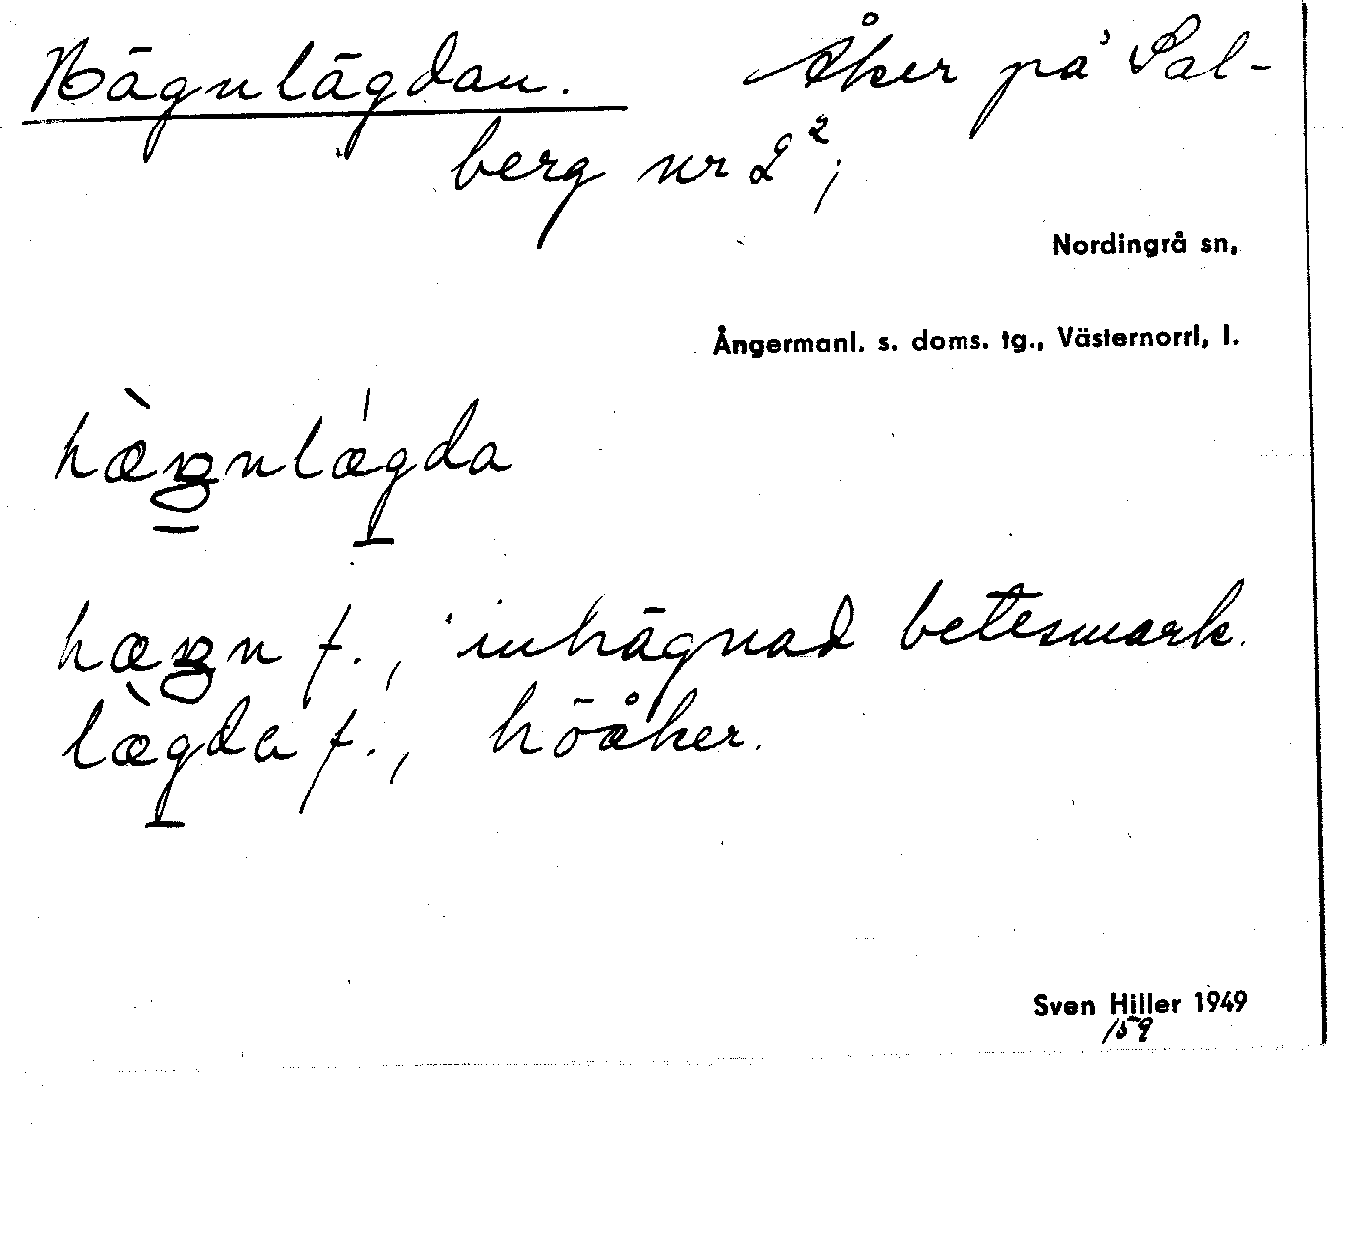 Hägnlägdan. Åker på Sal-
berg nr 2²;
Nordingrå sn,
Ångermanl. s. doms. tg., Västernorrl, l.
hæ̀gnlǽgda
hægn f., inhägnad betesmark.
læ̀gda f., höåker.
Sven Hiller 1949
159